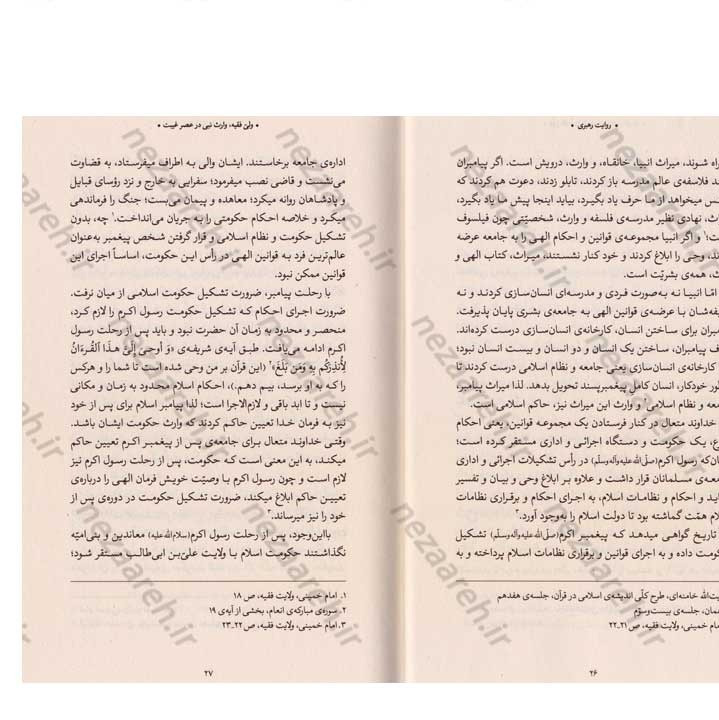 روایت رهبری •
راه شوند، میراث انبیا، خانقاه، و وارث، درویش است. اگر پیامبران
ند فلاسفه‌ی عالم مدرسه باز کردند، تابلو زدند، دعوت هم کردند که
کس میخواهد از ما حرف یاد بگیرد، بیاید اینجا پیش ما یاد بگیرد،
نهادی نظیر مدرسه‌ی فلسفه و وارث، شخصیّتی چون فیلسوف
و اگر انبیا مجموعه‌ی قوانین و احکام الهی را به جامعه عرضه
ند، وحی را ابلاغ کردند و خود کنار نشستند، میراث، کتاب الهی و
همه‌ی بشریّت است.
امّا انبیا نه به‌صورت فردی و مدرسه‌ای انسان‌سازی کردند و نه
یفه‌شان با عرضه‌ی قوانین الهی به جامعه‌ی بشری پایان پذیرفت.
مبران برای ساختن انسان، کارخانه‌ی انسان‌سازی درست کرده‌اند.
ف پیامبران، ساختن یک انسان و دو انسان و بیست انسان نبود؛
کارخانه‌ی انسان‌سازی یعنی جامعه و نظام اسلامی درست کردند تا
ور خودکار، انسان کامل پیغمبرپسند تحویل بدهد. لذا میراث پیامبر،
معه و نظام اسلامی۲ و وارث این میراث نیز، حاکم اسلامی است.
خداوند متعال در کنار فرستادن یک مجموعه قوانین، یعنی احکام
ع، یک حکومت و دستگاه اجرائی و اداری مستقر کرده است؛
نان‌که رسول اکرم(صلّی‌الله‌علیه‌وآله‌وسلّم) در رأس تشکیلات اجرائی و اداری
معه‌ی مسلمانان قرار داشت و علاوه بر ابلاغ وحی و بیان و تفسیر
اید و احکام و نظامات اسلام، به اجرای احکام و برقراری نظامات
لام همّت گماشته بود تا دولت اسلام را به‌وجود آورد.۳
تاریخ گواهی میدهد که پیغمبر اکرم(صلّی‌الله‌علیه‌وآله‌وسلّم) تشکیل
کومت داده و به اجرای قوانین و برقراری نظامات اسلام پرداخته و به
یت‌الله خامنه‌ای، طرح کلّی اندیشه‌ی اسلامی در قرآن، جلسه‌ی هفدهم
همان، جلسه‌ی بیست‌وسوّم
مام خمینی، ولایت فقیه، ص ۲۱_۲۲
۲۶
• ولیّ فقیه، وارث نبی در عصر غیبت •
اداره‌ی جامعه برخاستند. ایشان والی به اطراف میفرستاد، به قضاوت
می‌نشست و قاضی نصب میفرمود؛ سفرایی به خارج و نزد رؤسای قبایل
و پادشاهان روانه میکرد؛ معاهده و پیمان می‌بست؛ جنگ را فرماندهی
میکرد و خلاصه احکام حکومتی را به جریان می‌انداخت.۱ چه، بدون
تشکیل حکومت و نظام اسلامی و قرار گرفتن شخص پیغمبر به‌عنوان
عالم‌ترین فرد به قوانین الهی در رأس این حکومت، اساساً اجرای این
قوانین ممکن نبود.
با رحلت پیامبر، ضرورت تشکیل حکومت اسلامی از میان نرفت.
ضرورت اجرای احکام که تشکیل حکومت رسول اکرم را لازم کرد،
منحصر و محدود به زمان آن حضرت نبود و باید پس از رحلت رسول
اکرم ادامه می‌یافت. طبق آیه‌ی شریفه‌ی «وَ أوحِیَ إلَیَّ هـذَا القُرءَانُ
لِأُنذِرَکُم بِهِ وَمَن بَلَغَ»۲ (این قرآن بر من وحی شده است تا شما را و هرکس
را که به او برسد، بیم دهم.)، احکام اسلام محدود به زمان و مکانی
نیست و تا ابد باقی و لازم‌الاجرا است؛ لذا پیامبر اسلام برای پس از خود
نیز به فرمان خدا تعیین حاکم کردند که وارث حکومت ایشان باشد.
وقتی خداوند متعال برای جامعه‌ی پس از پیغمبر اکرم تعیین حاکم
میکند، به این معنی است که حکومت، پس از رحلت رسول اکرم نیز
لازم است و چون رسول اکرم با وصیّت خویش فرمان الهی را درباره‌ی
تعیین حاکم ابلاغ میکند، ضرورت تشکیل حکومت در دوره‌ی پس از
خود را نیز میرساند.۳
بااین‌وجود، پس از رحلت رسول اکرم(سلام‌الله‌علیه) معاندین و بنی‌امیّه
نگذاشتند حکومت اسلام با ولایت علیّ‌بن ابی‌طالب مستقر شود؛
۱. امام خمینی، ولایت فقیه، ص ۱۸
۲. سوره‌ی مبارکه‌ی انعام، بخشی از آیه‌ی ۱۹
۳. امام خمینی، ولایت فقیه، ص ۲۲_۲۳
۲۷
nezaareh.ir